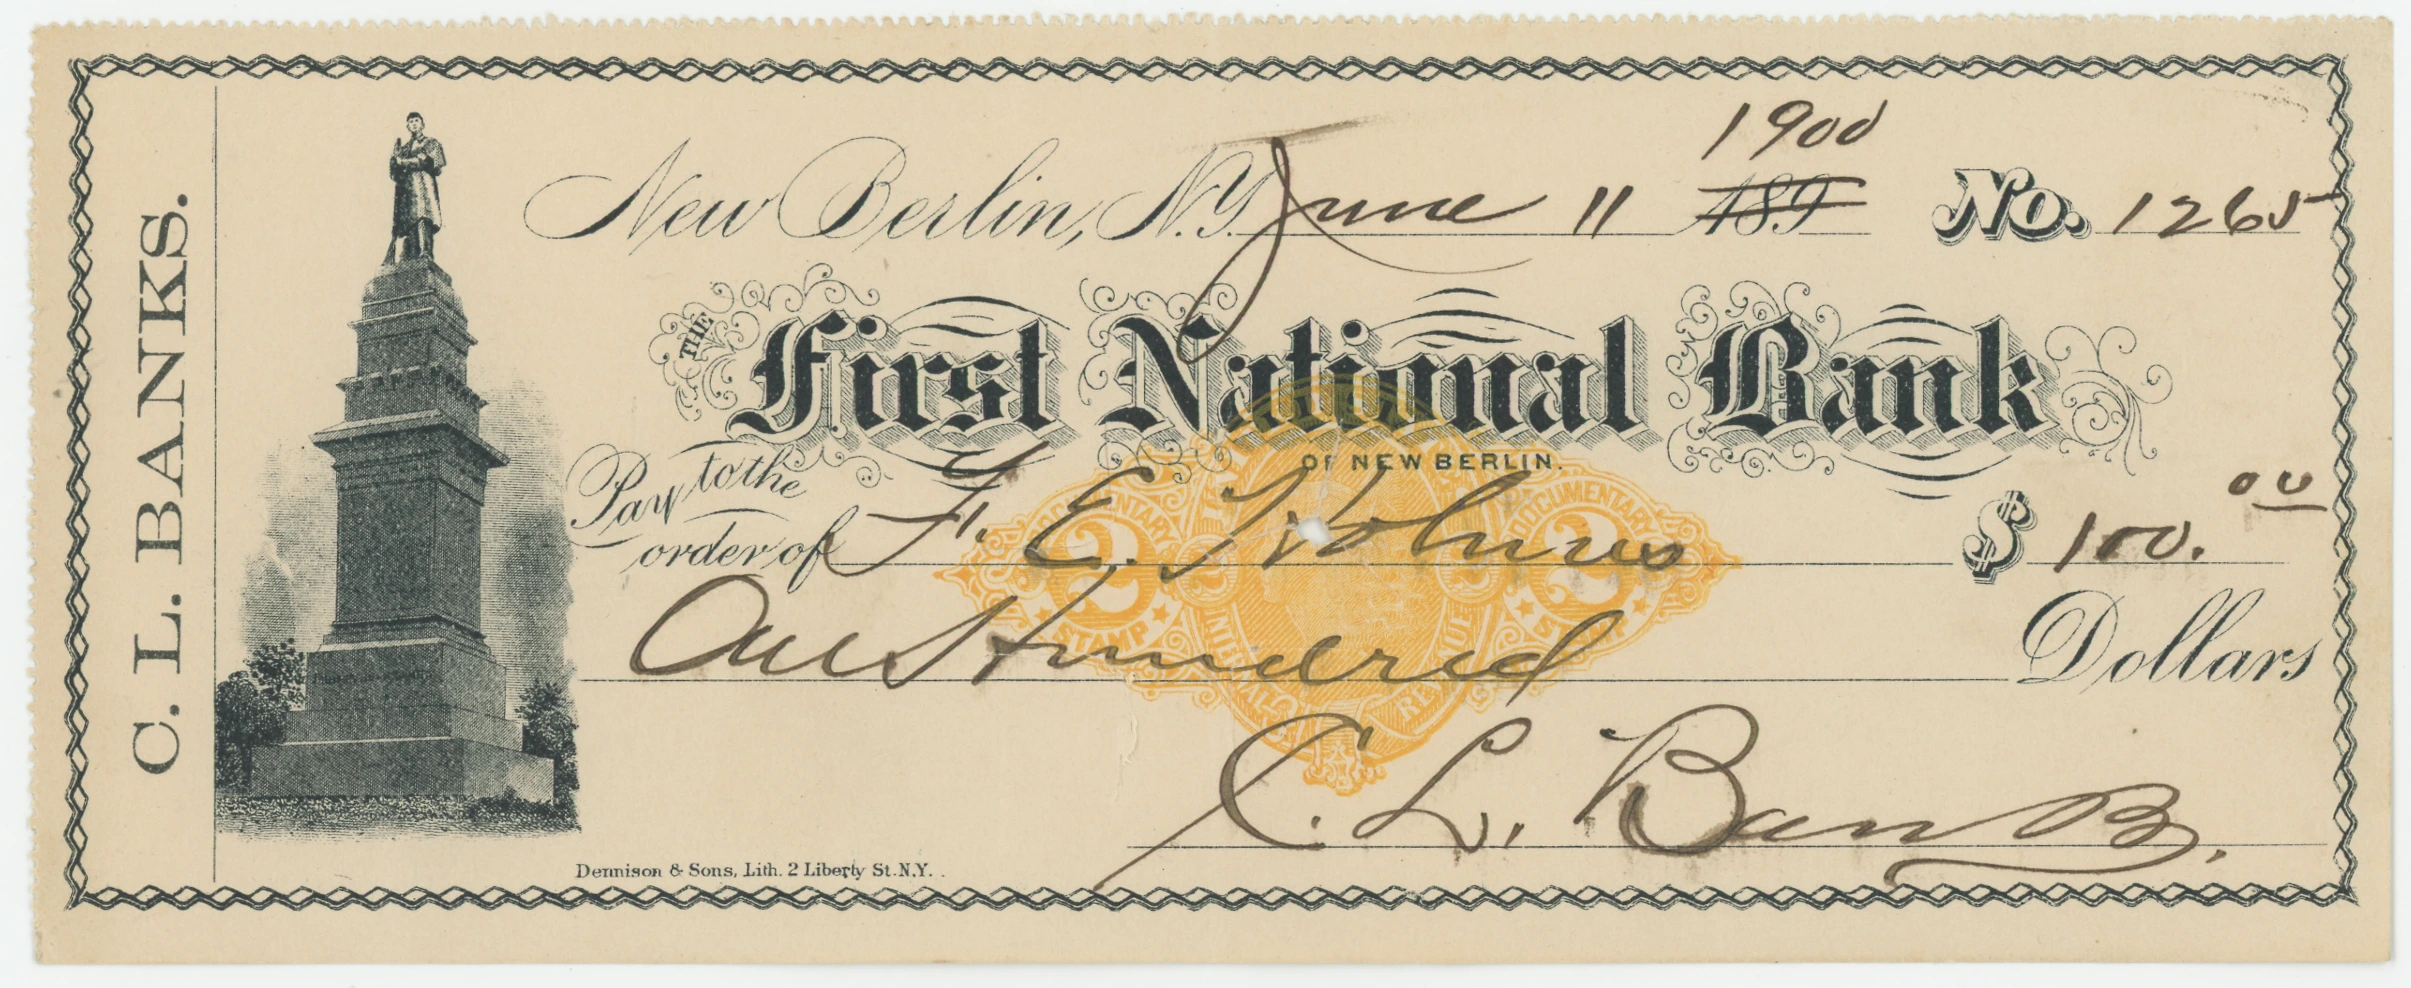 C. L. BANKS.
1900
New Berlin, N.Y. June 11 189 No. 1265
THE First National Bank
OF NEW BERLIN.
Pay to the
order of F. E. Holmes $ 100.00
One Hundred Dollars
DOCUMENTARY DOCUMENTARY
2 2 2 2
STAMP
C. L. Banks.
Dennison & Sons, Lith. 2 Liberty St. N.Y.